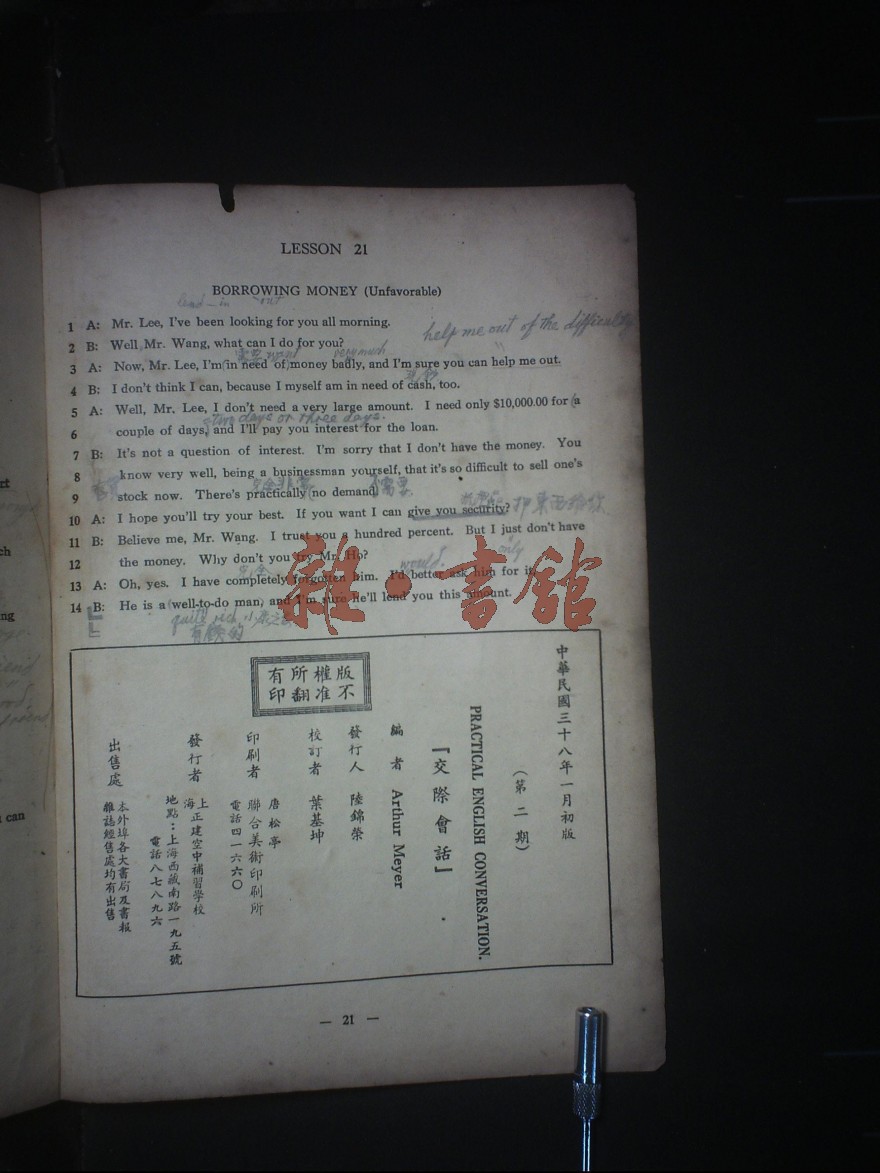 LESSON 21
BORROWING MONEY (Unfavorable)
out
1 A: Mr. Lee, I've been looking for you all morning.
help me out of the difficulty
2 B: Well Mr. Wang, what can I do for you?
want very much
3 A: Now, Mr. Lee, I'm in need of money badly, and I'm sure you can help me out.
4 B: I don't think I can, because I myself am in need of cash, too.
5 A: Well, Mr. Lee, I don't need a very large amount. I need only $10,000.00 for a
two days or three days.
6 couple of days, and I'll pay you interest for the loan.
7 B: It's not a question of interest. I'm sorry that I don't have the money. You
8 know very well, being a businessman yourself, that it's so difficult to sell one's
不需要
9 stock now. There's practically no demand
押東西給你
10 A: I hope you'll try your best. If you want I can give you security?
11 B: Believe me, Mr. Wang. I trust you a hundred percent. But I just don't have
only
12 the money. Why don't you try Mr. Ho?
完全 would
13 A: Oh, yes. I have completely forgotten him. I'd better ask him for it.
14 B: He is a well-to-do man, and I'm sure he'll lend you this amount.
quite rich
有錢的
雜·書館
中華民國三十八年一月初版
(第二期)
PRACTICAL ENGLISH CONVERSATION.
『交際會話』
編者 Arthur Meyer
發行人 陸錦榮
校訂者 葉基坤
版權所有
不准翻印
印刷者
唐松亭
聯合美術印刷所
電話四一六六〇
發行者
上海正建空中補習學校
地點：上海西藏南路一九五號
電話八七八九六
出售處
本外埠各大書局及書報
雜誌經售處均有出售
— 21 —
rt
ch
ng
can